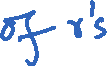 of r's